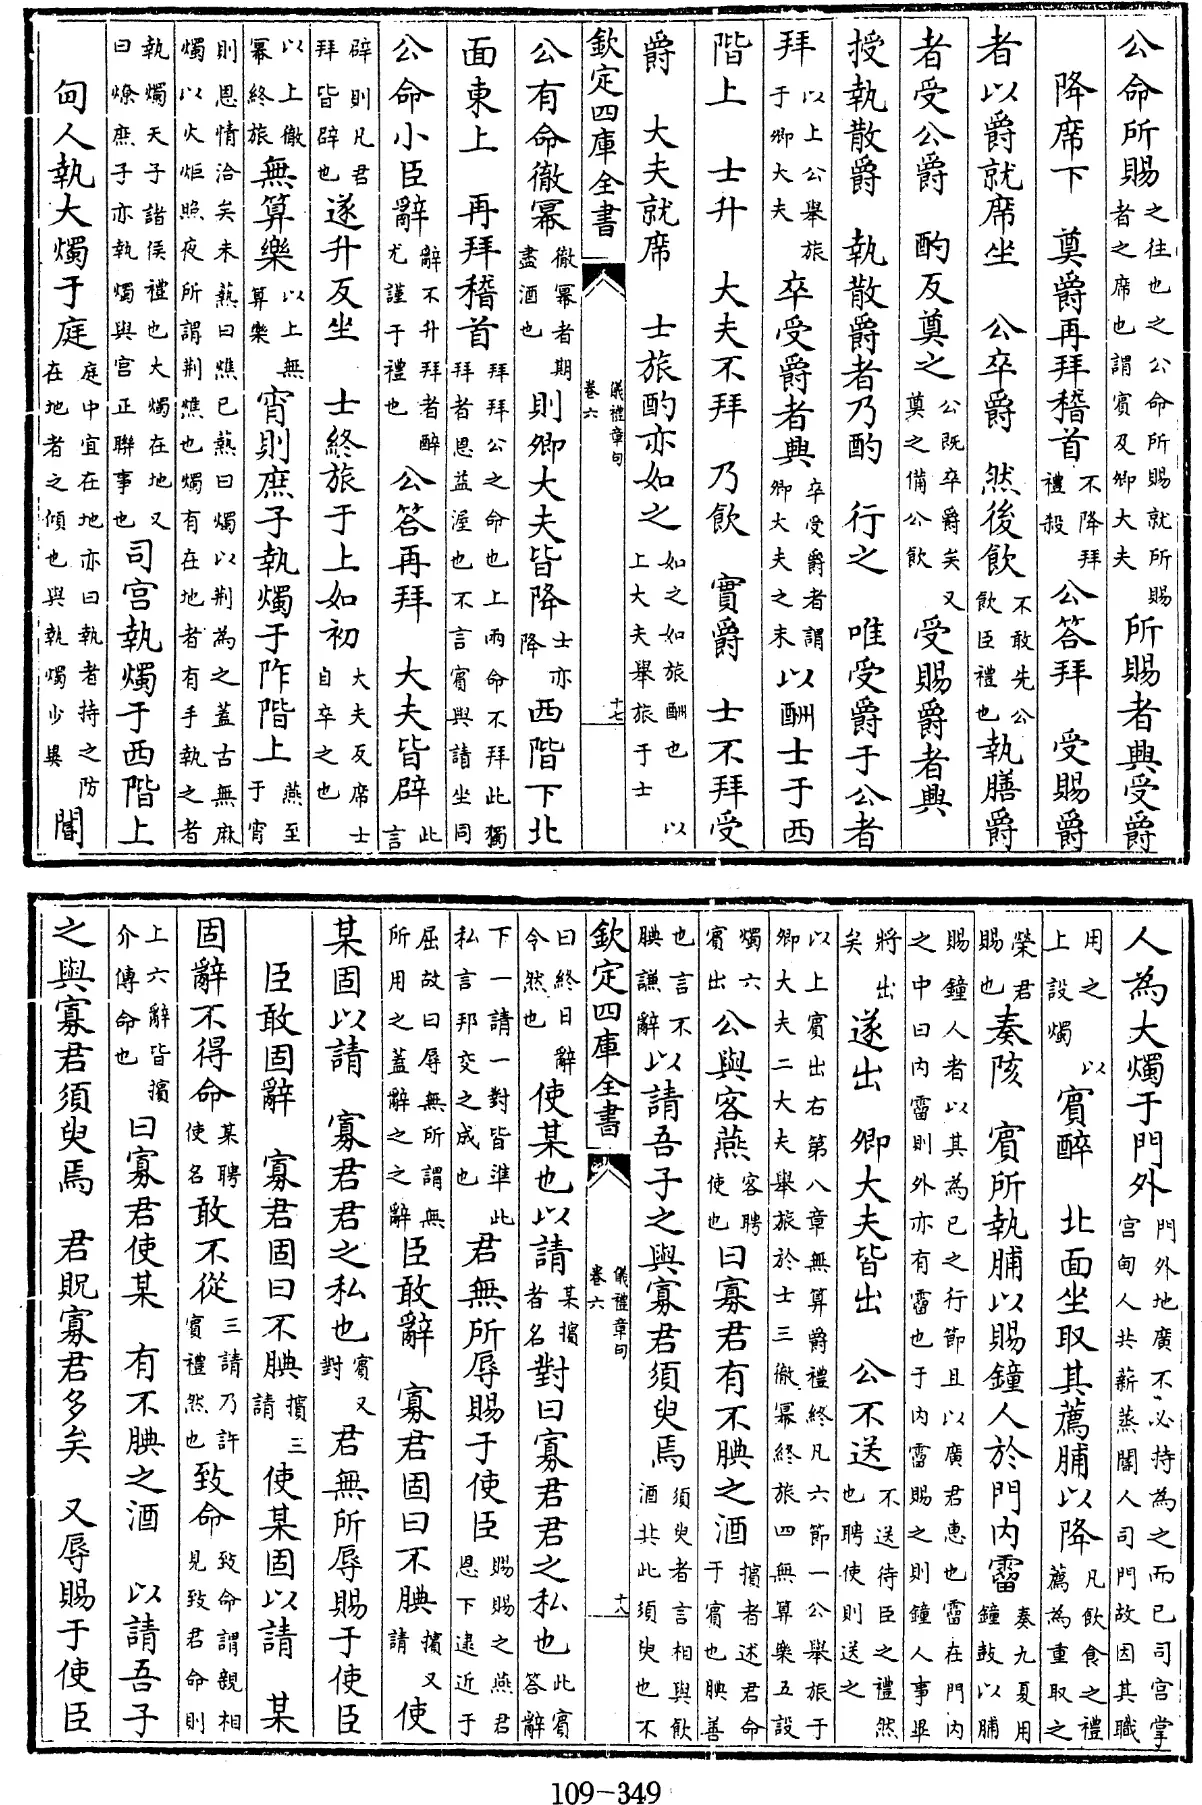 公命所賜之往也之公命所賜就所賜者之席也謂賓及卿大夫所賜者興受爵
降席下　奠爵再拜稽首不降拜禮殺公答拜　受賜爵
者以爵就席坐　公卒爵　然後飲不敢先公飲臣禮也執膳爵
者受公爵　酌反奠之公既卒爵矣又奠之備公飲受賜爵者興
授執散爵　執散爵者乃酌　行之　唯受爵于公者
拜以上公舉旅于卿大夫卒受爵者興卒受爵者謂卿大夫之末以酬士于西
階上　士升　大夫不拜　乃飲　實爵　士不拜受
爵　大夫就席　士旅酌亦如之如之如旅酬也　以上大夫舉旅于士
欽定四庫全書　儀禮章句卷六　十七
公有命徹冪徹冪者期盡酒也則卿大夫皆降士亦降西階下北
面東上　再拜稽首拜拜公之命也上兩命不拜此獨拜者恩益渥也不言賓與請坐同
公命小臣辭辭不升拜者醉尤謹于禮也　公答再拜　大夫皆辟此言
辟則凡君拜皆辟也遂升反坐　士終旅于上如初大夫反席士自卒之也
以上徹冪終旅無算樂以上無算樂宵則庶子執燭于阼階上燕至于宵
則恩情洽矣未爇曰燋已爇曰燭以荆為之蓋古無麻燭以火炬照夜所謂荆燋也燭有在地者有手執之者
執燭天子諸侯禮也大燭在地又曰燎庶子亦執燭與宫正聯事也司宫執燭于西階上
甸人執大燭于庭庭中宜在地亦曰執者持之防在地者之傾也與執燭少異閽
人為大燭于門外門外地廣不必持為之而已司宫掌宫甸人共薪蒸閽人司門故因其職
用之　以上設燭賓醉　北面坐取其薦脯以降凡飲食之禮薦為重取之
榮君賜也奏陔　賓所執脯以賜鐘人於門内霤奏九夏用鐘鼓以脯
賜鐘人者以其為已之行節且以廣君惠也霤在門内之中曰内霤則外亦有霤也于内霤賜之則鐘人事畢
將出矣遂出　卿大夫皆出　公不送不送待臣之禮然也聘使則送之
以上賓出右第八章無算爵禮終凡六節一公舉旅于卿大夫二大夫舉旅於士三徹冪終旅四無算樂五設
燭六賓出公與客燕客聘使也曰寡君有不腆之酒擯者述君命于賓也腆善
也言不腆謙辭以請吾子之與寡君須臾焉須臾者言相與飲酒共此須臾也不
欽定四庫全書　儀禮章句卷六　十八
曰終日辭令然也使某也以請某擯者名對曰寡君君之私也此賓答辭
下一請一對皆準此私言邦交之成也君無所辱賜于使臣賜賜之燕君恩下逮近于
屈故曰辱無所謂無所用之蓋辭之之辭臣敢辭　寡君固曰不腆擯又請使
某固以請　寡君君之私也賓又對君無所辱賜于使臣
臣敢固辭　寡君固曰不腆擯三請使某固以請　某
固辭不得命某聘使名敢不從三請乃許賓禮然也致命致命謂親相見致君命則
上六辭皆擯介傳命也曰寡君使某　有不腆之酒　以請吾子
之與寡君須臾焉　君貺寡君多矣　又辱賜于使臣
109-349